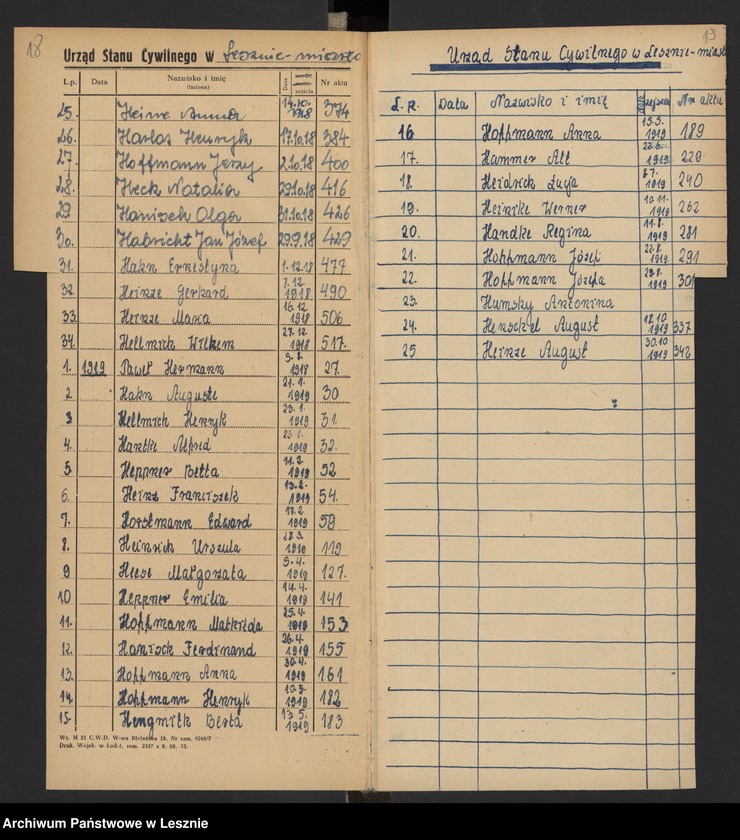 18
Urząd Stanu Cywilnego w Lesznie-miasto
L.p. Data Nazwisko i imię (imiona) Data zejścia Nr aktu
25. Heine Anna 14.10. 1918 374
26. Harlos Henryk 17.10.18 384
27. Hoffmann Jerzy 2.10.18 400
28. Heck Natalia 29.10.18 416
29 Hanisch Olga 31.10.18 426
30. Habricht Jan Józef 29.9.18 429
31. Hahn Ernestyna 1.12.18 477
32. Heinze Gerhard 7.12. 1918 490
33. Heinze Maria 16.12 1918 506
34. Hellmich Wilhem 27.12 1918 517.
1. 1919 Paweł Hermann 1918 27.
2 Hahn Auguste 21.1. 1919 30
3. Hellmich Henryk 23.1. 1919 31.
4. Hantke Alfred 1919 32.
5 Heppner Betta 11.2 1919 52
6. Heinz Franciszek 13.2. 1919 54.
7. Horstmann Edward 17.2 1919 59
8. Heinrich Urszula 28.3. 1919 119
9 Heese Małgorzata 5.4. 1919 127.
10 Heppner Emilia 14.4. 1919 141
11. Hoffmann Mathilda 25.4. 1919 153
12. Hanisch Ferdinand 26.4. 1919 155
13. Hoffmann Anna 30.4. 1919 161
14. Hoffmann Henryk 10.5. 1919 182
15. Berta 13.5. 1919 183
Wz. M 21 C.W.D. W-wa Bielańska 18. Nr zam. 9240/P
Druk. Wojsk. w Łodzi, zam. 2337 z 6. 08. 53.
19
Urząd Stanu Cywilnego w Lesznie-miasto
L.p. Data Nazwisko i imię Data zejścia Nr aktu
16 Hoffmann Anna 15.5. 1919 189
17. Hammer 22.6. 1919 220
18. Heidrich Łucja 1919 240
19. Heinrike Werner 10.11. 1919 262
20. Handke Regina 11.8. 1919 281
21. Hoffmann Józef 22.8. 1919 291
22. Hoffmann Józefa 29.8. 1919 301
23. Humsky Antonina
24. Henschel August 18.10 1919 337
25 Heinze August 30.10 1919 342
Archiwum Państwowe w Lesznie